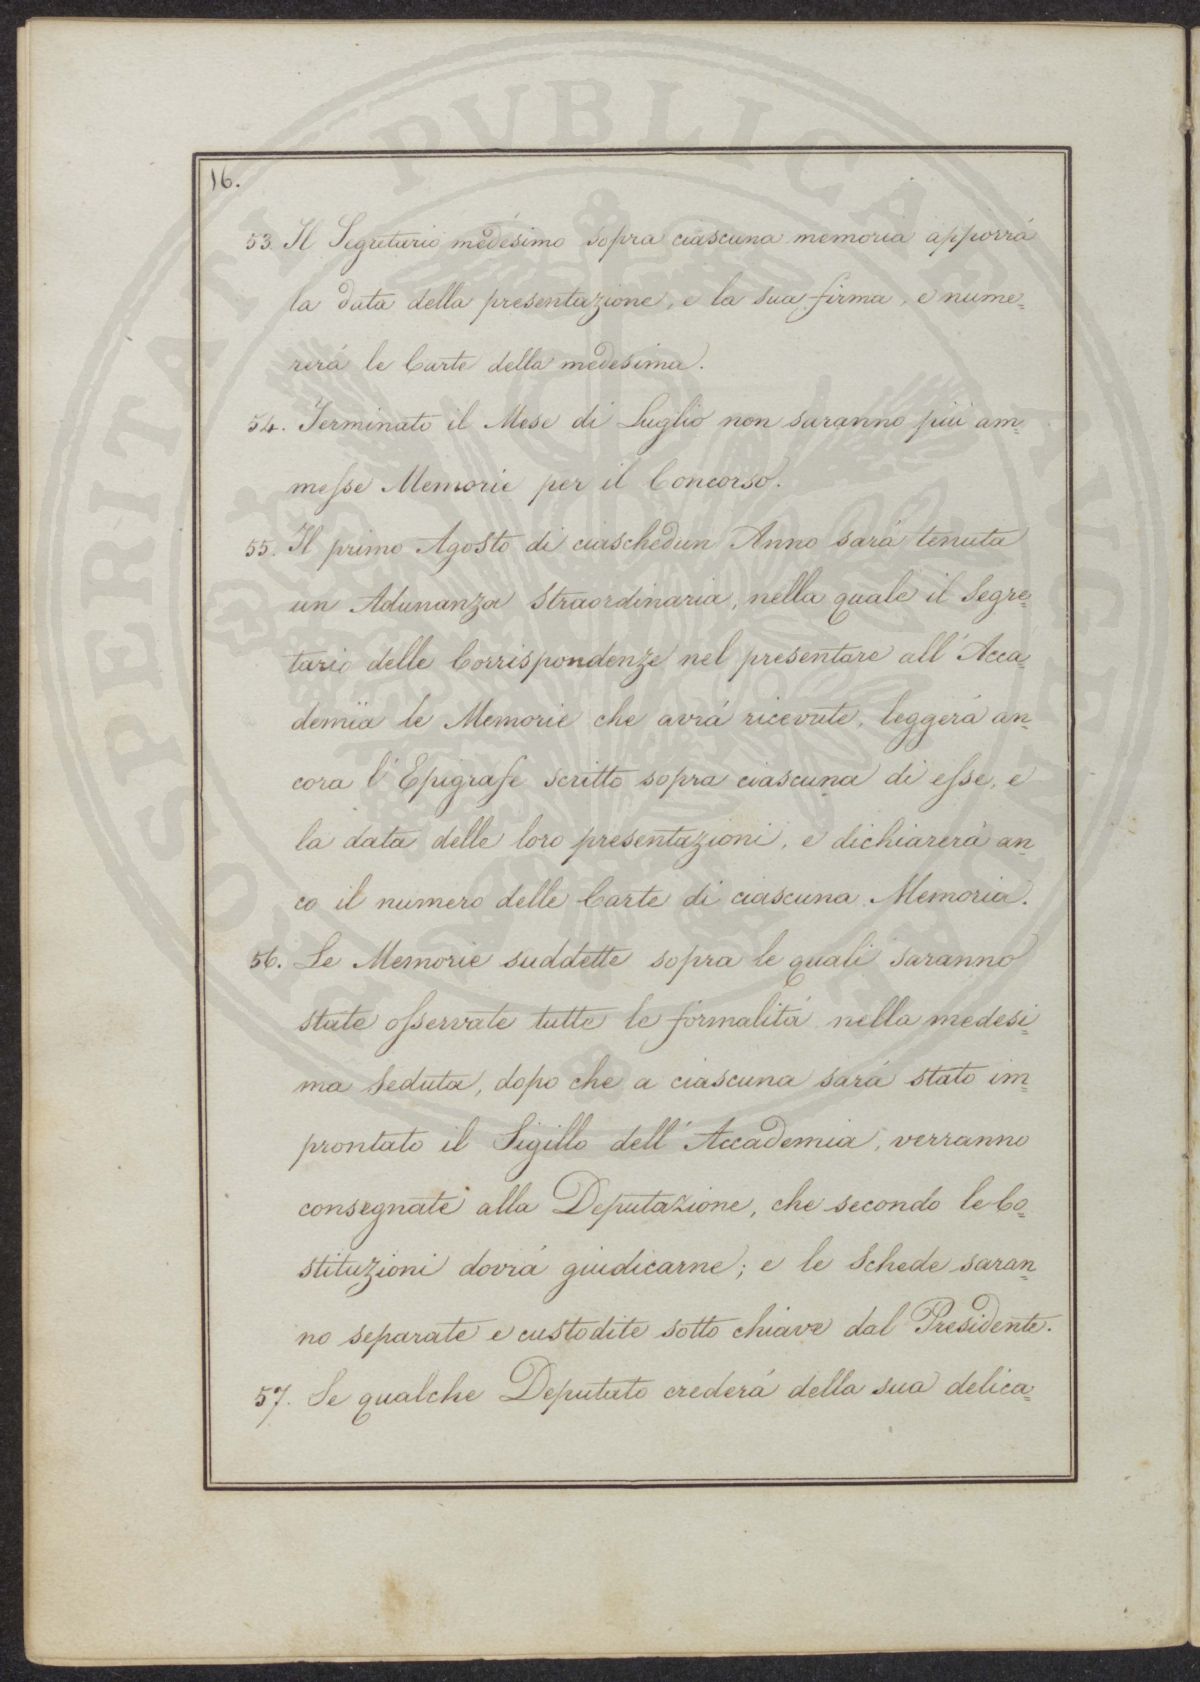 16.
53. Il Segretario medesimo sopra ciascuna memoria apporrá
la data della presentazione, e la sua firma, e nume=
rerá le Carte della medesima.
54. Terminato il Mese di Luglio non saranno piú am=
messe Memorie per il Concorso.
55. Il primo Agosto di ciaschedun Anno sará tenuta
un Adunanza straordinaria, nella quale il Segre=
tario delle Corrispondenze nel presentare all'Acca=
demia le Memorie che avrá ricevute, leggerá an=
cora l'Epigrafe scritto sopra ciascuna di esse, e
la data delle loro presentazioni, e dichiarerá an=
co il numero delle Carte di ciascuna Memoria.
56. Le Memorie suddette sopra le quali saranno
state osservate tutte le formalitá nella medesi=
ma Seduta, dopo che a ciascuna sará stato im=
prontato il Sigillo dell'Accademia, verranno
consegnate alla Deputazione, che secondo le Co=
stituzioni dovrá giudicarne; e le Schede saran=
no separate e custodite sotto chiave dal Presidente.
57. Se qualche Deputato crederá della sua delica=
PROSPERITATI PVBLICAE AVGENDAE